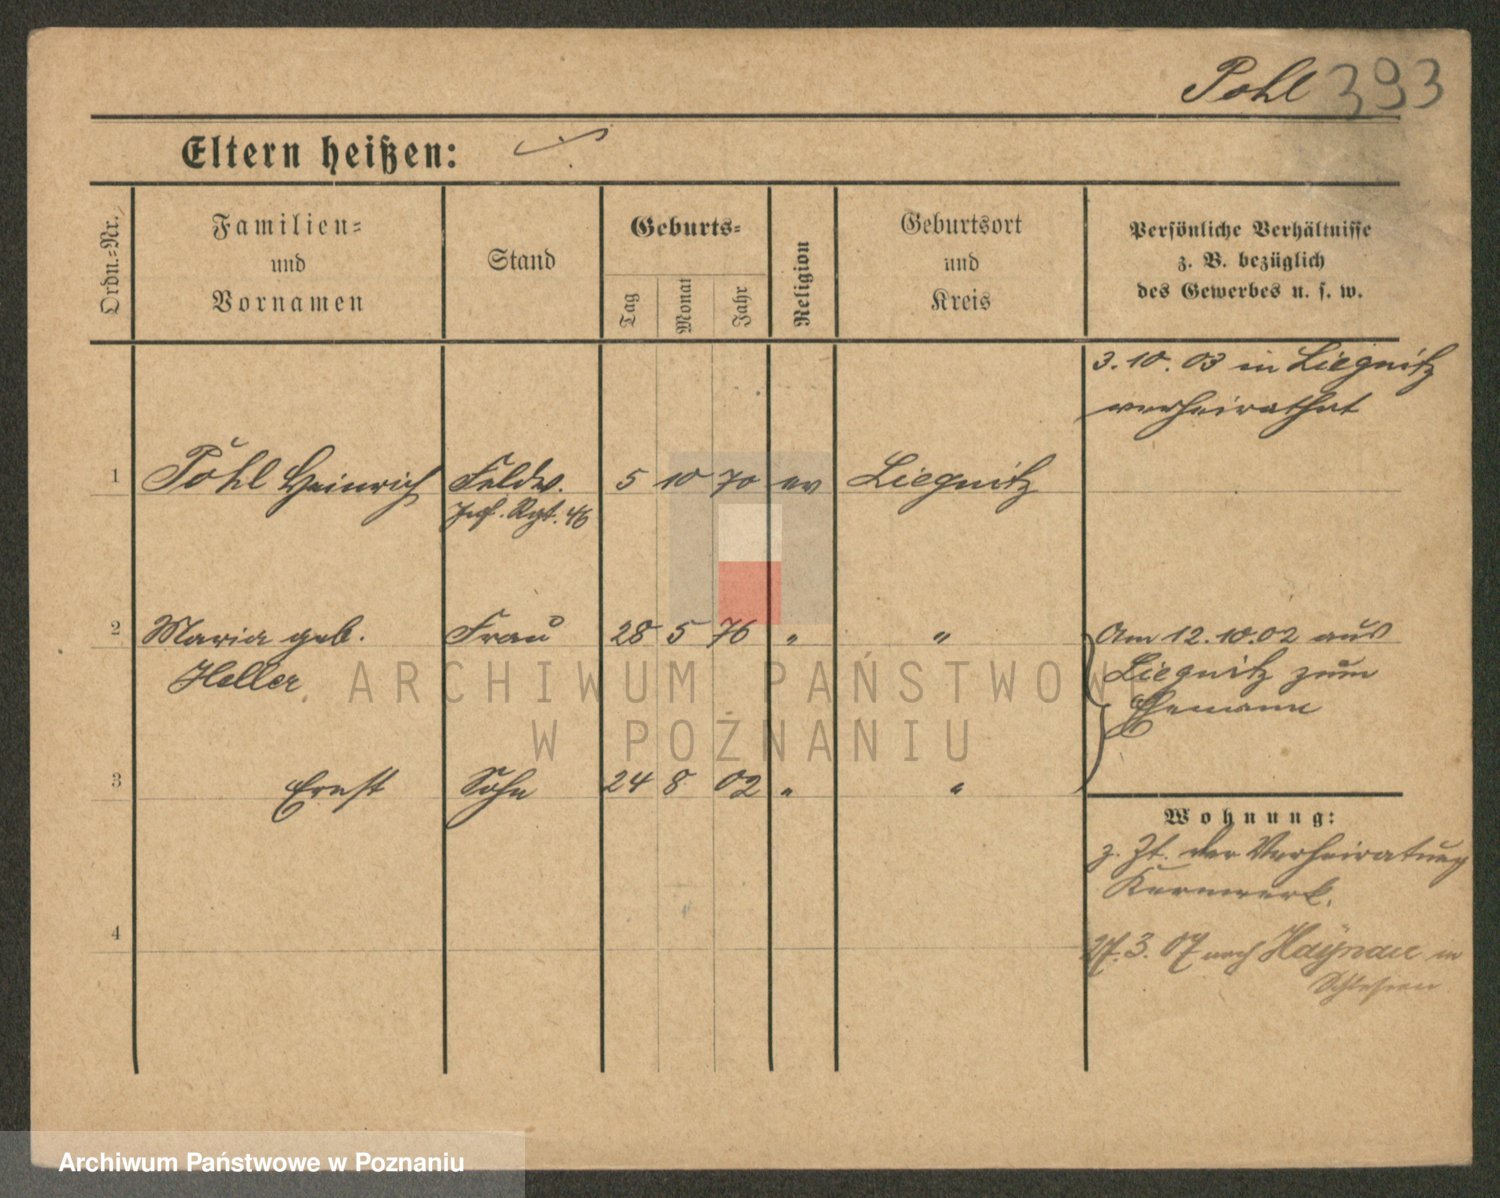 Pohl 393
Eltern heißen:
Ordn.-Nr.
Familien-
und
Vornamen
Stand
Geburts-
Tag
Monat
Jahr
Religion
Geburtsort
und
Kreis
Persönliche Verhältnisse
z. B. bezüglich
des Gewerbes u. s. w.
3.10.03 in Liegnitz
verheirathet
1 Pohl Heinrich Feldw. 5 10 70 ev Liegnitz
Inf. Rgt. 46
2 Maria geb. Frau 28 5 76 " " Am 12.10.02 aus
Heller Liegnitz zum
Ehemann
3 Ernst Sohn 24 8 02 " "
Wohnung:
z. Zt. der Verheiratung
Kernwerk.
4
27.3.07 nach Haynau in
Schlesien
ARCHIWUM PAŃSTWOWE
W POZNANIU
Archiwum Państwowe w Poznaniu